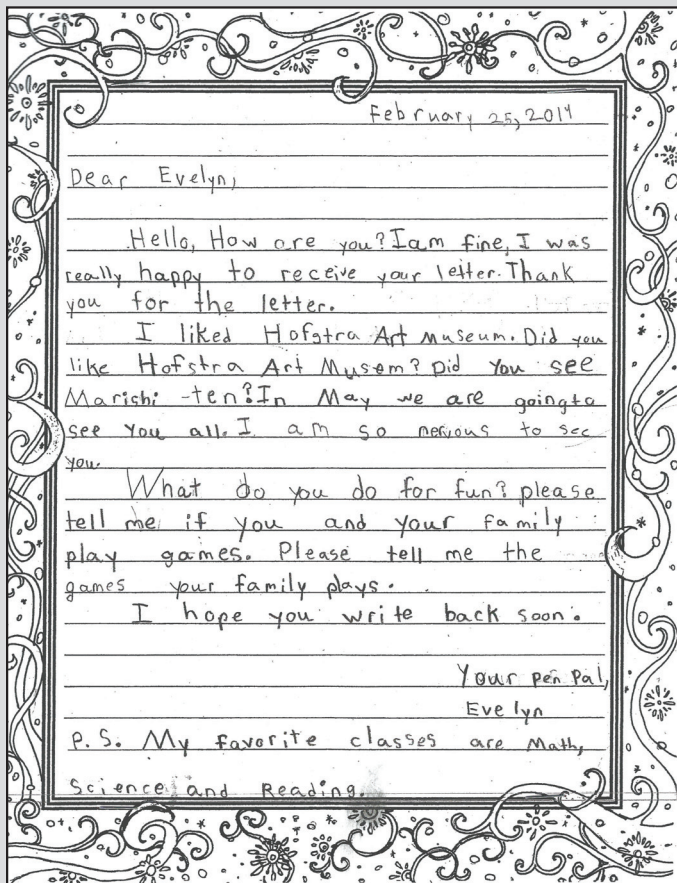 February 25, 2014
Dear Evelyn,
Hello, How are you? Iam fine, I was
really happy to receive your letter. Thank
you for the letter.
I liked Hofstra Art Museum. Did you
like Hofstra Art Musem? Did You see
Marishi -ten? In May we are goingto
see You all. I am so nervous to see
you.
What do you do for fun? please
tell me if you and your family
play games. Please tell me the
games your family plays.
I hope you write back soon.
Your pen Pal,
Evelyn
P.S. My favorite classes are Math,
Science and Reading.